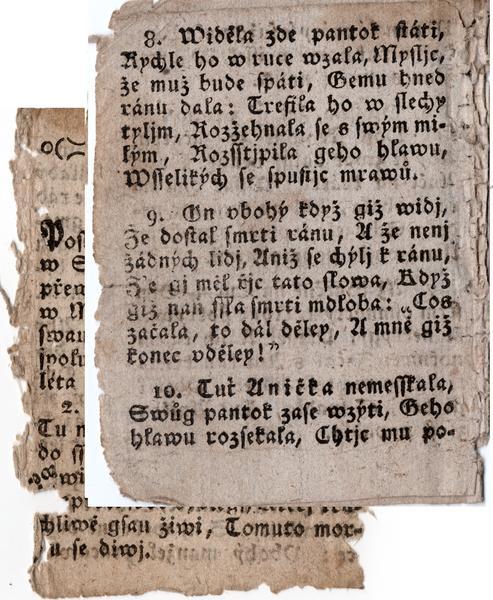 8. Widěla zde pantok státi,
Rychle ho w ruce wzala, Mysljc,
že muž bude spáti, Gemu hned
ránu dala: Trefila ho w slechy
tyljm, Rozžehnala se s swým mi-
lým, Rozsstjpila geho hlawu,
Wsselikých se spustjc mrawů.
9. On vbohý když giž widj,
Že dostal smrti ránu, A že nenj
žádných lidj, Aniž se chýlj k ránu,
Že gj měl řjc tato slowa, Když
giž naň ssla smrti mdloba: „Cos
začala, to dál děley, A mně giž
konec vděley!"
10. Tuť Anička nemesskala,
Swůg pantok zase wzýti, Geho
hlawu rozsekala, Chtjc mu po-
Pos
w S
přem
w M
swau
spolu
léta
2.
Tu n
do ss
wi
hliwě gsau žiwi, Tomuto mor-
u se diwj.